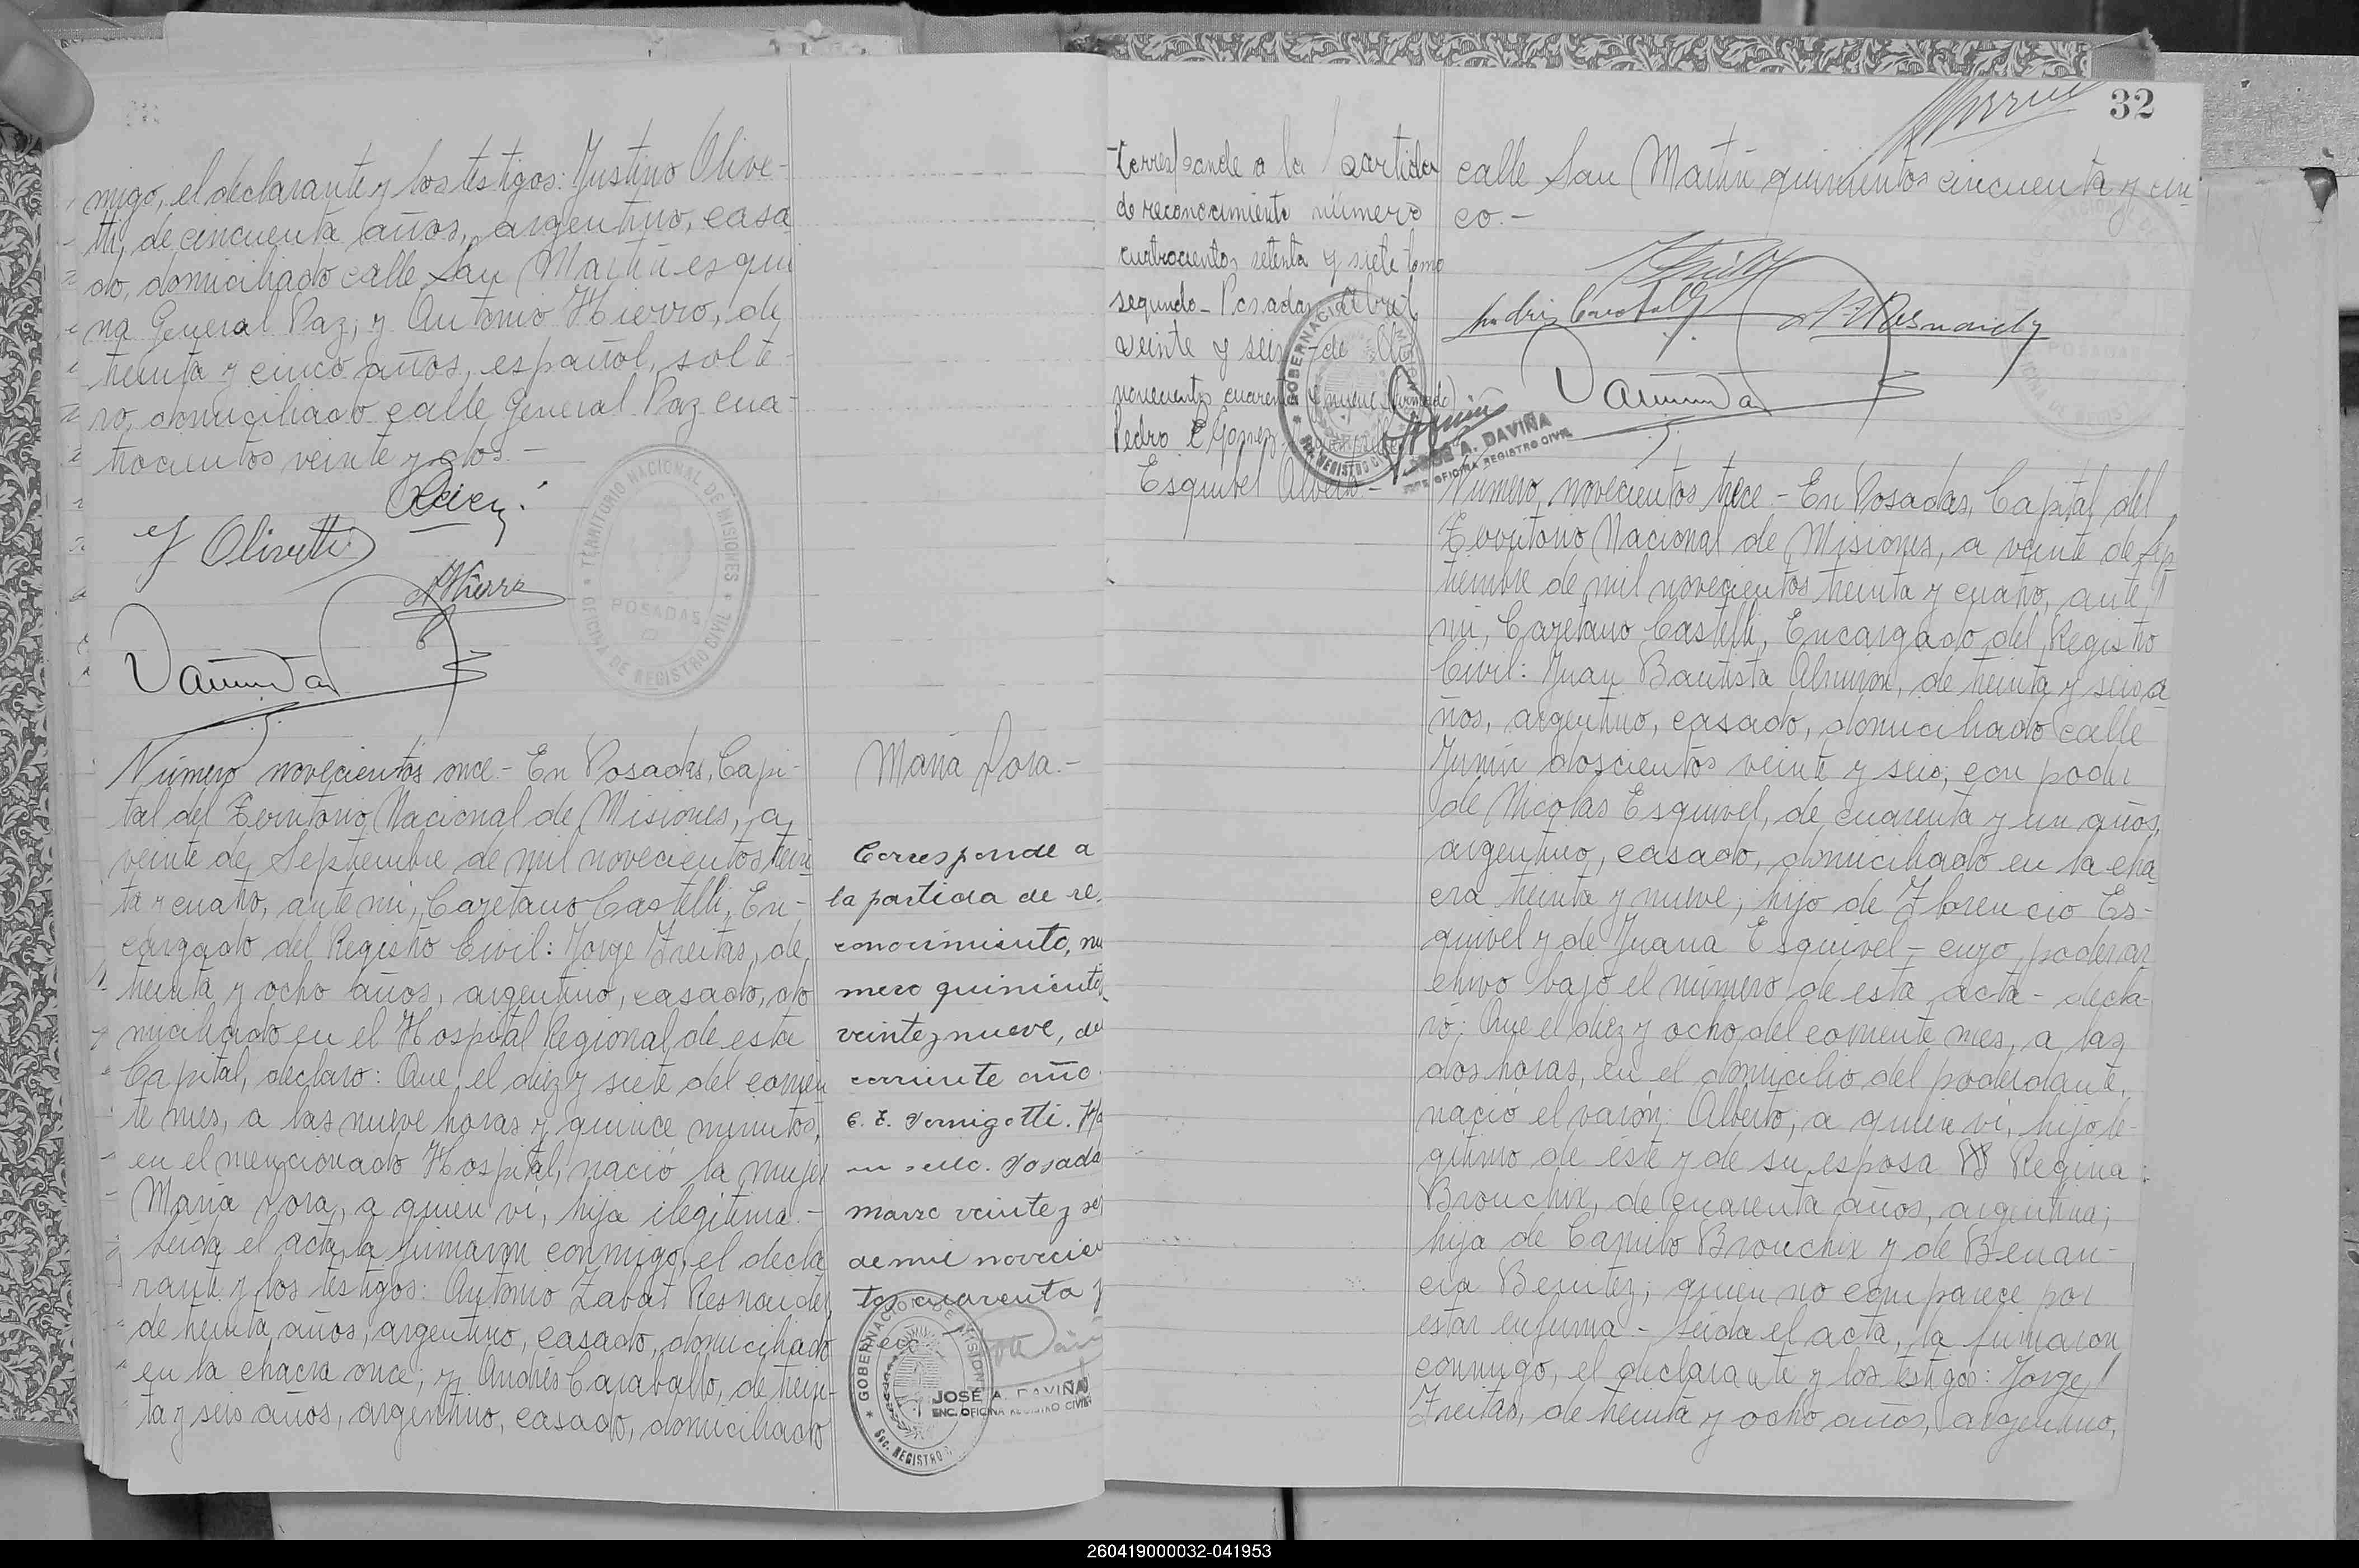 migo, el declarante y los testigos: Justino Olive-
tti, de cincuenta años, argentino, casa
do, domiciliado calle San Martín esqui
na General Paz; y Antonio Hierro, de
treinta y cinco años, español, solte-
ro, domiciliado calle General Paz cua-
trocientos veinte y dos.-
J Olivetti
AHierro
TERRITORIO NACIONAL DE MISIONES
POSADAS
OFICINA DE REGISTRO CIVIL
Número novecientos once - En Posadas, Capi-
tal del Territorio Nacional de Misiones, a
veinte de Septiembre de mil novecientos trein
ta y cuatro, ante mi, Cayetano Castelli, En-
cargado del Registro Civil: Jorge Freitas, de
treinta y ocho años, argentino, casado, do
miciliado en el Hospital Regional de esta
Capital, declaro: Que, el diez y siete del corrien
te mes, a las nueve horas y quince minutos,
en el mencionado Hospital, nació la mujer
María Rosa, a quien vi, hija ilegítima.-
Leida el acta, la firmaron conmigo, el decla
rante y los testigos: Antonio Zabat Resnande
de treinta años, argentino, casado, domiciliado
en la chacra once; y Andrés Caraballo, de trein-
ta y seis años, argentino, casado, domiciliado
María Rosa.-
Corresponde a
la partida de re-
conocimiento, nu
mero quinientos
veinte y nueve, del
corriente año.
marzo veinte y se
de mil novecien
tos cuarenta y
GOBERNACION DE MISIONES
Sec. REGISTRO C
JOSÉ A. DAVIÑA
ENC. OFICINA REGISTRO CIVIL
32
Corresponde a la partida
de reconocimiento número
cuatrocientos setenta y siete tomo
segundo - Posadas, Abril
veinte y seis de mil
novecientos cuarenta y nueve (firmado)
Pedro E Gomez
GOBERNACION
REGISTRO CIVIL
JOSÉ A. DAVIÑA
JEFE OFICINA REGISTRO CIVIL
Esquivel Alberto -
calle San Martín quinientos cincuenta y cin
co.-
POSADAS
Número, novecientos trece - En Posadas, Capital del
Territorio Nacional de Misiones, a veinte de Sep
tiembre de mil novecientos treinta y cuatro, ante
mi, Cayetano Castelli, Encargado del Registro
Civil: Juan Bautista Almiron, de treinta y seis a
ños, argentino, casado, domiciliado calle
Junín doscientos veinte y seis; con poder
de Nicolas Esquivel, de cuarenta y un años,
argentino, casado, domiciliado en la cha
cra treinta y nueve; hijo de Florencio Es-
quivel y de Juana Esquivel - cuyo poder ar
chivo bajo el número de esta acta - decla-
ró: Que el diez y ocho del corriente mes, a las
dos horas, en el domicilio del poderdante,
nació el varón: Alberto, a quien vi, hijo le-
gítimo de éste y de su esposa Regina
Brouchix, de cuarenta años, argentina;
hija de Camilo Brouchix y de Benan-
cia Benitez; quien no comparece por
estar enferma - Leida el acta, la firmaron
conmigo, el declarante y los testigos: Jorge
Freitas, de treinta y ocho años, argentino,
260419000032-041953